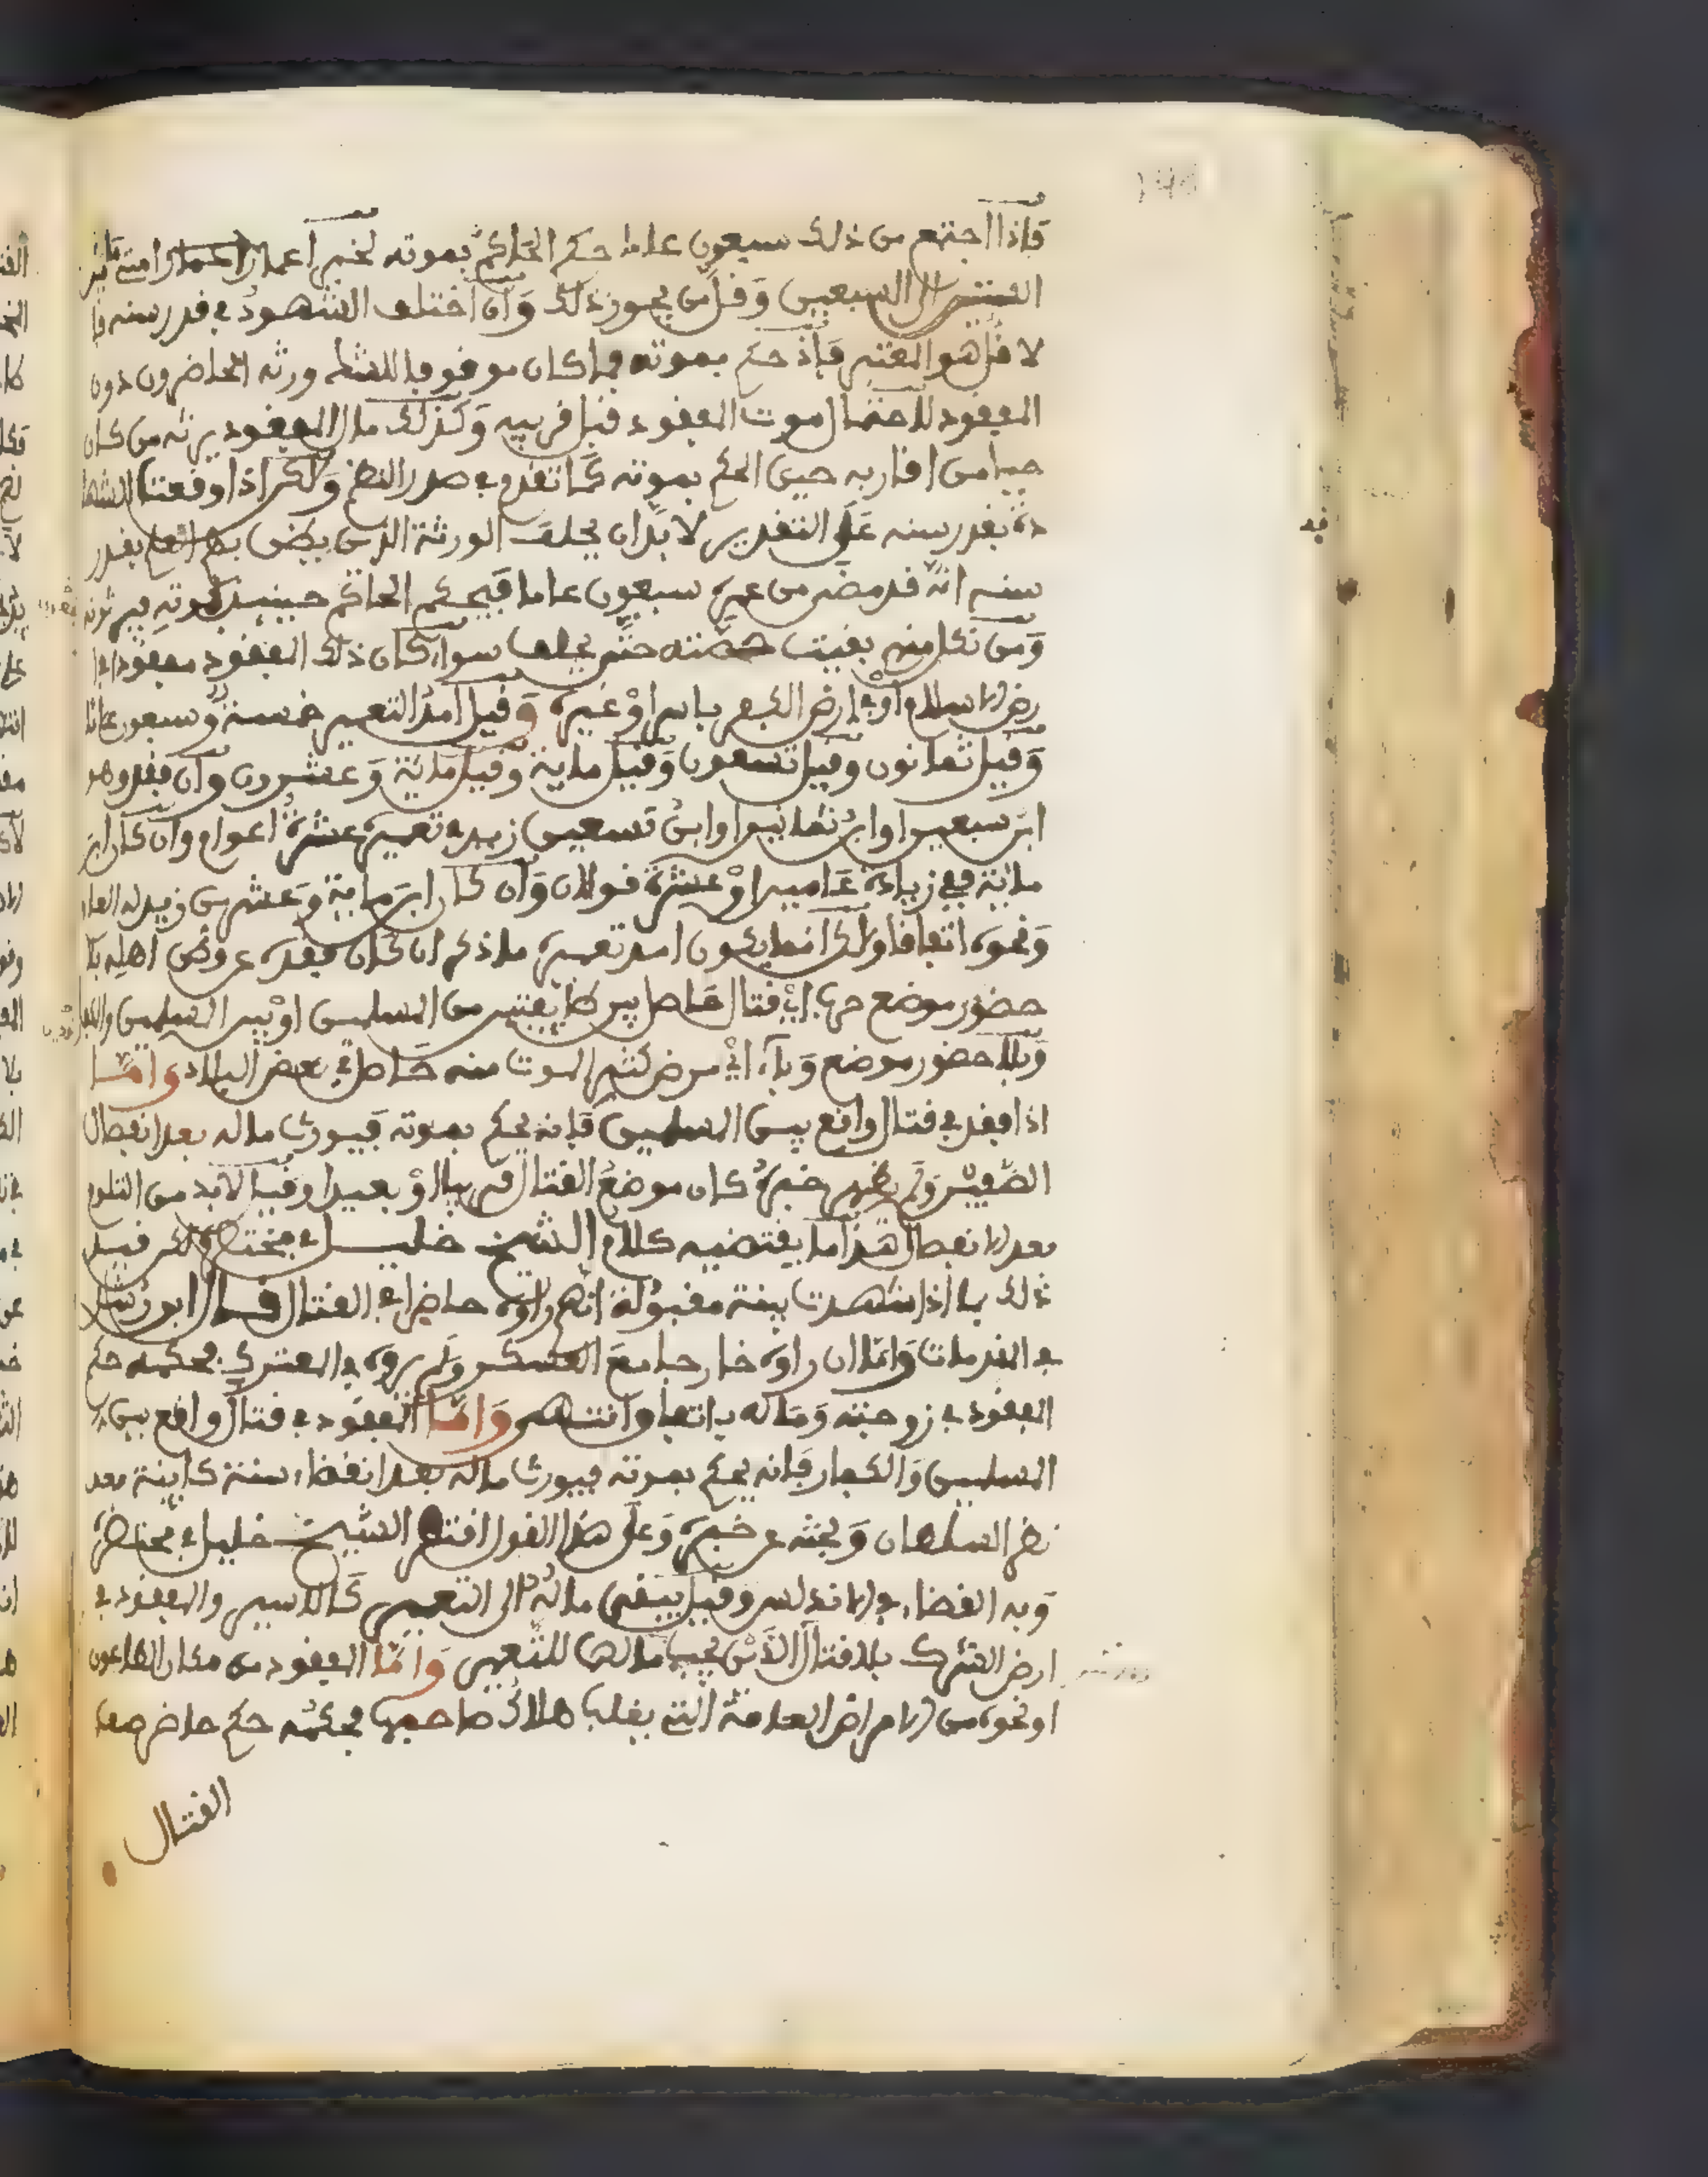 فإذا اجتمع من ذلك سبعون عاما حكم الحاكم بموته لخبر أعمار امتي ما بين
الستين إلى السبعين وقل من يجوز ذلك وان اختلف الشهود في قدر سنه فا
لاقل هو المعتبر فإذ حكم بموته فما كان موقوفا للشك ورثه الحاضرون دون
المفقود لاحتمال موت المفقود قبل قريبه وكذلك مال المفقود يرثه من كان
حيا من اقاربه حين الحكم بموته كما تقدم في صدر النظم ولكن اذا وقعت الشها
دة بقدر سنه على التقدير لا بد ان يحلف الورثة الذين يظن بهم العلم بقدر
سنه انه قد مضى من عمره سبعون عاما فيحكم الحاكم حينئذ بموته فيرثونه
ومن نكل منهم بقيت حصته حتى يحلف سواء كان ذلك المفقود مفقودا في ا
رض الاسلام أو في ارض الكفر باسر أو غيره وقيل أمد التعمير خمسة وسبعون عاما
وقيل ثمانون وقيل تسعون وقيل مائة وقيل مائة وعشرون وان فقد وهو
ابن سبعين او ابن ثمانين او ابن تسعين زيد في تعميره عشرة اعوام وان كان ابن
مائة ففي زيادة عامين او عشرة قولان وان كان ابن مائة وعشرين زيد له العام
ونحوه اتفاقا ولكن انما يكون امد تعميره ما ذكر ان كان فقده عن اهله بلا
حضور موضع حرب أي قتال حاصل بين طائفتين من المسلمين او بين المسلمين والكفار
وبلا حضور موضع وباء أي مرض كثر الموت منه حاصل في بعض البلاد وأما
اذا فقد في قتال واقع بين المسلمين فإنه يحكم بموته فيورث ماله بعد انفصال
الصفين ولم يظهر خبره كان موضع القتال قريبا أو بعيدا وقيل لا بد من التلوم
بعد الانفصال هذا ما يقتضيه كلام الشيخ خليل في مختصره لكن قيد
ذلك بما اذا شهدت بينة مقبولة انهم راوه حاضرا في القتال قال ابن رشد
في المقدمات وأما ان راوه خارجا مع العسكر ولم يروه في المعترك فحكمه حكم
المفقود في زوجته وماله باتفاق انتهى وأما المفقود في قتال واقع بين
المسلمين والكفار فإنه يحكم بموته فيورث ماله بعد انقضاء سنة كاينة بعد
نظر السلطان وبحثه عن خبره وعلى هذا القول اقتصر الشيخ خليل في مختصره
وبه القضاء في الاندلس وقيل يبقى ماله الى التعمير كالاسير والمفقود في
ارض الشرك بلا قتال الذين يجب مالهما للتعمير وأما المفقود من مكان الطاعون
او نحوه من الامراض العامة التي يغلب هلاك صاحبها فحكمه حكم حاضر صف
القتال